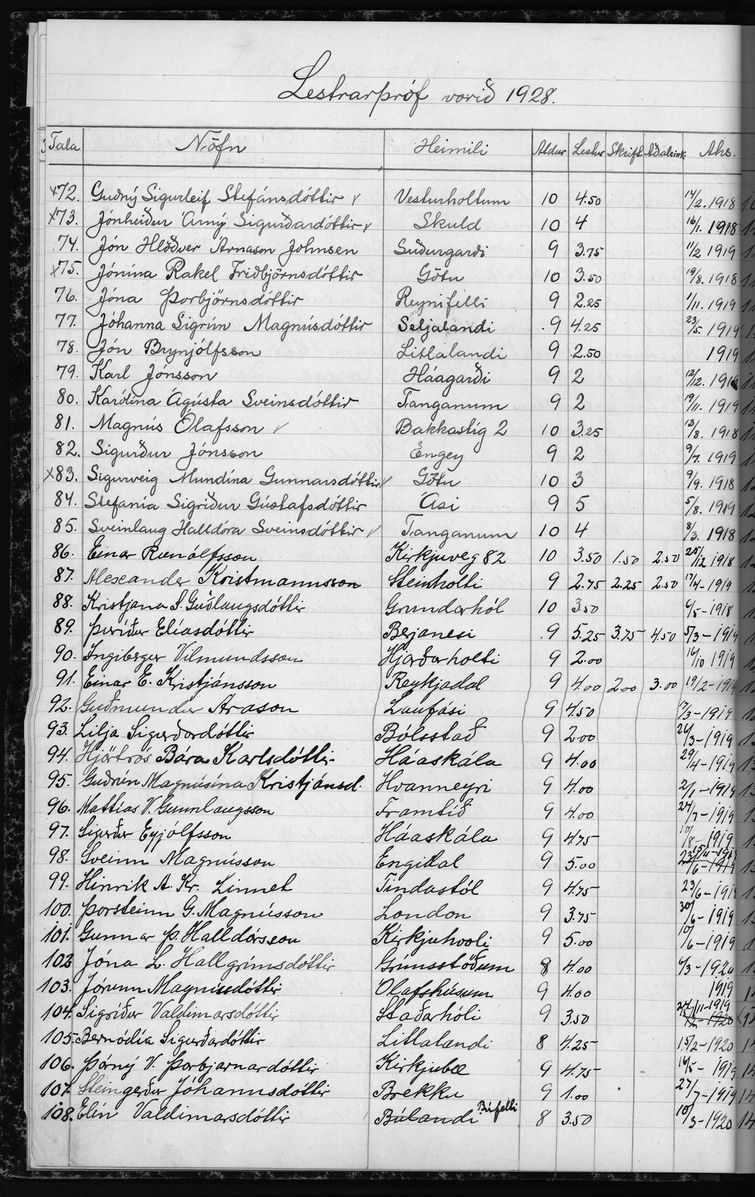 Lestrarpróf vorið 1928.
Tala Nöfn Heimili Aldur Lestur Skrift Aðaleink. Aths.
x72. Guðný Sigurleif Stefánsdóttir v Vesturholtum 10 4.50 14/2. 1918
x73. Jónheiður Árný Sigurðardóttir v Skuld 10 4 16/1. 1918
74. Jón Hlöðver Árnason Johnsen Suðurgarði 9 3.75 11/2 1919
x75. Jónína Rakel Friðbjörnsdóttir Götu 10 3.50 19/8. 1918
76. Jóna Þorbjörnsdóttir Reynifelli 9 2.25 1/11. 1919
77. Jóhanna Sigrún Magnúsdóttir Seljalandi 9 4.25 23/5. 1919
78. Jón Brynjólfsson Litlalandi 9 2.50 1919
79. Karl Jónsson Háagarði 9 2 12/12.
80. Karólína Ágústa Sveinsdóttir Tanganum 9 2 19/11. 1919
81. Magnús Ólafsson v Bakkastig 2 10 3.25 13/8. 1918
82. Sigurður Jónsson Engey 9 2 9/7. 1919
x83. Sigurveig Mundína Gunnarsdóttir v Götu 10 3 9/9. 1918
84. Stefanía Sigríður Gústafsdóttir Ási 9 5 5/8. 1919
85. Sveinlaug Halldóra Sveinsdóttir v Tanganum 10 4 8/3. 1918
86. Einar Runólfsson Kirkjuveg 82 10 3.50 1.50 2.50 25/12 1918
87. Alexander Kristmannsson Steinholti 9 2.75 2.25 2.50 17/4-1919
88. Kristjana S. Guðlaugsdóttir Grundarhól 10 3.50 6/5-1918
89. Þuríður Elíasdóttir Berjanesi 9 5.25 3.75 4.50 5/3-1919
90. Ingibergur Vilmundsson Hjarðarholti 9 2.00 16/10 1919
91. Einar E. Kristjánsson Reykjadal 9 4.00 2.00 3.00 19/2-1919
92. Guðmundur Arason Laufási 9 4.50 7/3-1919
93. Lilja Sigurðardóttir Bólstað 9 2.00 26/3-1919
94. Hjörtrós Bára Karlsdóttir Háaskála 9 4.00 29/4-1919
95. Guðrún Magnúsína Kristjánsd. Hvanneyri 9 4.00 2/1-1919
96. Mattías V. Gunnlaugsson Framtíð 9 4.00 24/3-1919
97. Sigurður Eyjólfsson Háaskála 9 4.75 10/8-1919
98. Sveinn Magnússon Engidal 9 5.00
99. Hinrik A. Kr. Linnet Tindastól 9 4.75 23/6-1919
100. Þorsteinn G. Magnússon London 9 3.75 30/6-1919
101. Gunnar Þ. Halldórsson Kirkjuhvoli 9 5.00 10/6-1919
102 Jóna L. Hallgrímsdóttir Grímsstöðum 8 4.00 4/3-1920
103. Jórunn Magnúsdóttir Ólafshúsum 9 4.00 1919
104. Sigríður Valdimarsdóttir Staðarhóli 9 3.50 24/11-1919
105. Bernódía Sigurðardóttir Litlalandi 8 4.25 15/2-1920
106. Þórný V. Þorbjarnardóttir Kirkjubæ 9 4.75 14/5-1919
107. Steingerður Jóhannsdóttir Brekku 9 1.00 27/7-1919
108. Elín Valdimarsdóttir Búlandi Búfelli 8 3.50 10/3-1920